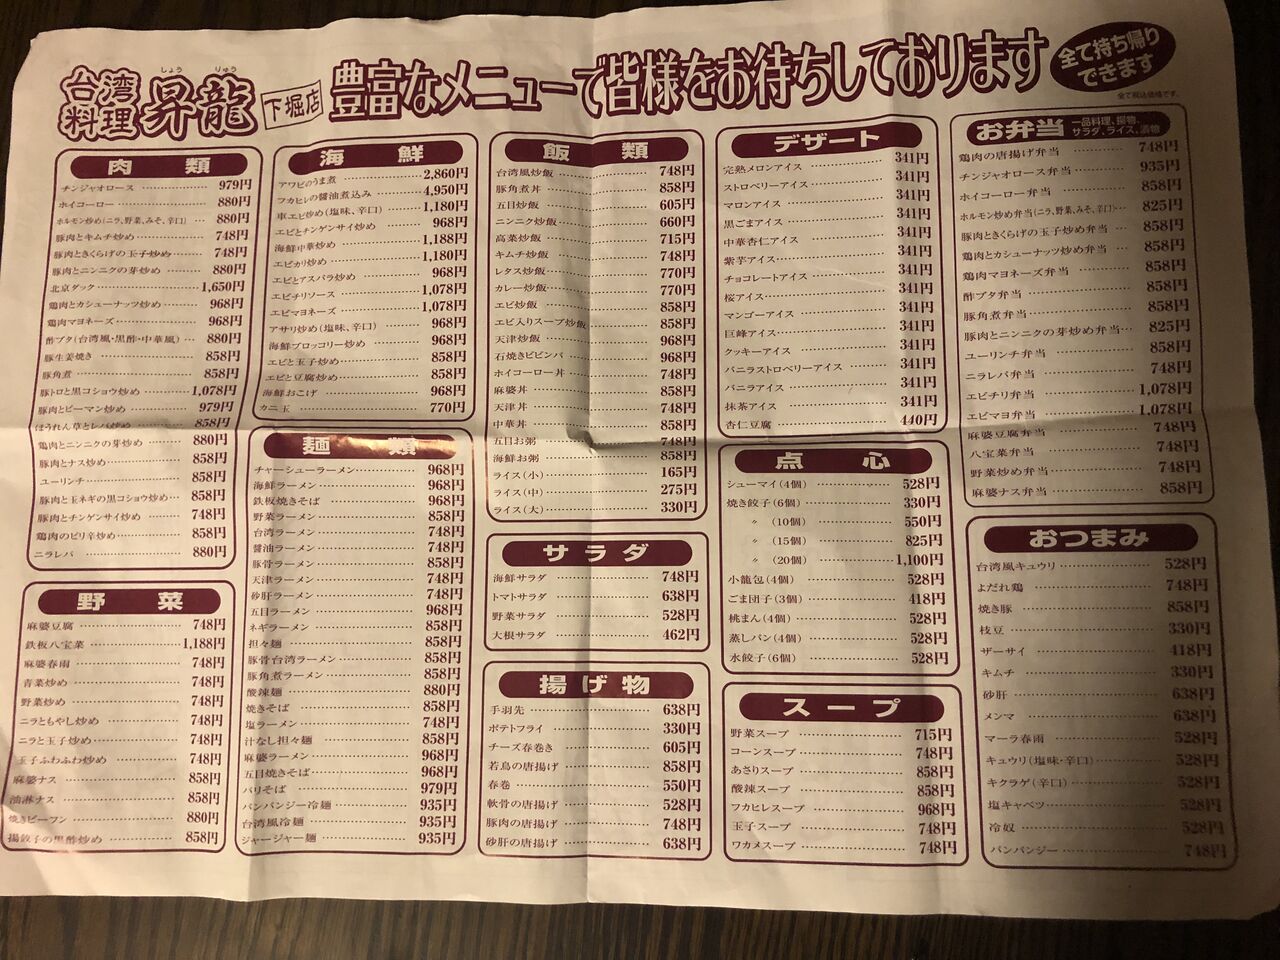 台湾料理 昇龍
しょう りゅう
下堀店
豊富なメニューで皆様をお待ちしております
全て持ち帰りできます
全て税込価格です。
肉類
チンジャオロース 979円
ホイコーロー 880円
ホルモン炒め(ニラ、野菜、みそ、辛口) 880円
豚肉とキムチ炒め 748円
豚肉ときくらげの玉子炒め 748円
豚肉とニンニクの芽炒め 880円
北京ダック 1,650円
鶏肉とカシューナッツ炒め 968円
鶏肉マヨネーズ 968円
酢ブタ(台湾風・黒酢・中華風) 880円
豚生姜焼き 858円
豚角煮 858円
豚トロと黒コショウ炒め 1,078円
豚肉とピーマン炒め 979円
ほうれん草とレバ炒め 858円
鶏肉とニンニクの芽炒め 880円
豚肉とナス炒め 858円
ユーリンチ 858円
豚肉と玉ネギの黒コショウ炒め 858円
豚肉とチンゲンサイ炒め 748円
鶏肉のピリ辛炒め 858円
ニラレバ 880円
野菜
麻婆豆腐 748円
鉄板八宝菜 1,188円
麻婆春雨 748円
青菜炒め 748円
野菜炒め 748円
ニラともやし炒め 748円
ニラと玉子炒め 748円
玉子ふわふわ炒め 748円
麻婆ナス 858円
油淋ナス 858円
焼きビーフン 880円
揚餃子の黒酢炒め 858円
海鮮
アワビのうま煮 2,860円
フカヒレの醤油煮込み 4,950円
車エビ炒め(塩味、辛口) 1,180円
エビとチンゲンサイ炒め 968円
海鮮中華炒め 1,188円
エビカリ炒め 1,180円
エビとアスパラ炒め 968円
エビチリソース 1,078円
エビマヨネーズ 1,078円
アサリ炒め(塩味、辛口) 968円
海鮮ブロッコリー炒め 968円
エビと玉子炒め 858円
エビと豆腐炒め 858円
海鮮おこげ 968円
カニ玉 770円
麺類
チャーシューラーメン 968円
海鮮ラーメン 968円
鉄板焼きそば 968円
野菜ラーメン 858円
台湾ラーメン 748円
醤油ラーメン 748円
豚骨ラーメン 858円
天津ラーメン 748円
砂肝ラーメン 748円
五目ラーメン 968円
ネギラーメン 858円
担々麺 858円
豚骨台湾ラーメン 858円
豚角煮ラーメン 858円
酸辣麺 880円
焼きそば 858円
塩ラーメン 748円
汁なし担々麺 858円
麻婆ラーメン 968円
五目焼きそば 968円
バリそば 979円
バンバンジー冷麺 935円
台湾風冷麺 935円
ジャージャー麺 935円
飯類
台湾風炒飯 748円
豚角煮丼 858円
五目炒飯 605円
ニンニク炒飯 660円
高菜炒飯 715円
キムチ炒飯 748円
レタス炒飯 770円
カレー炒飯 770円
エビ炒飯 858円
エビ入りスープ炒飯 858円
天津炒飯 968円
石焼きビビンバ 968円
ホイコーロー丼 748円
麻婆丼 858円
天津丼 748円
中華丼 858円
五目お粥 748円
海鮮お粥 858円
ライス(小) 165円
ライス(中) 275円
ライス(大) 330円
サラダ
海鮮サラダ 748円
トマトサラダ 638円
野菜サラダ 528円
大根サラダ 462円
揚げ物
手羽先 638円
ポテトフライ 330円
チーズ春巻き 605円
若鳥の唐揚げ 858円
春巻 550円
軟骨の唐揚げ 528円
豚肉の唐揚げ 748円
砂肝の唐揚げ 638円
デザート
完熟メロンアイス 341円
ストロベリーアイス 341円
マロンアイス 341円
黒ごまアイス 341円
中華杏仁アイス 341円
紫芋アイス 341円
チョコレートアイス 341円
桜アイス 341円
マンゴーアイス 341円
巨峰アイス 341円
クッキーアイス 341円
バニラストロベリーアイス 341円
バニラアイス 341円
抹茶アイス 341円
杏仁豆腐 440円
点心
シューマイ(4個) 528円
焼き餃子(6個) 330円
〃 (10個) 550円
〃 (15個) 825円
〃 (20個) 1,100円
小龍包(4個) 528円
ごま団子(3個) 418円
桃まん(4個) 528円
蒸しパン(4個) 528円
水餃子(6個) 528円
スープ
野菜スープ 715円
コーンスープ 748円
あさりスープ 858円
酸辣スープ 858円
フカヒレスープ 968円
玉子スープ 748円
ワカメスープ 748円
お弁当 一品料理、揚物、サラダ、ライス、漬物
鶏肉の唐揚げ弁当 748円
チンジャオロース弁当 935円
ホイコーロー弁当 858円
ホルモン炒め弁当(ニラ、野菜、みそ、辛口) 825円
豚肉ときくらげの玉子炒め弁当 858円
鶏肉とカシューナッツ炒め弁当 858円
鶏肉マヨネーズ弁当 858円
酢ブタ弁当 858円
豚角煮弁当 858円
豚肉とニンニクの芽炒め弁当 825円
ユーリンチ弁当 858円
ニラレバ弁当 748円
エビチリ弁当 1,078円
エビマヨ弁当 1,078円
麻婆豆腐弁当 748円
八宝菜弁当 748円
野菜炒め弁当 748円
麻婆ナス弁当 858円
おつまみ
台湾風キュウリ 528円
よだれ鶏 748円
焼き豚 858円
枝豆 330円
ザーサイ 418円
キムチ 330円
砂肝 638円
メンマ 638円
マーラ春雨 528円
キュウリ(塩味・辛口) 528円
キクラゲ(辛口) 528円
塩キャベツ 528円
冷奴 528円
バンバンジー 748円